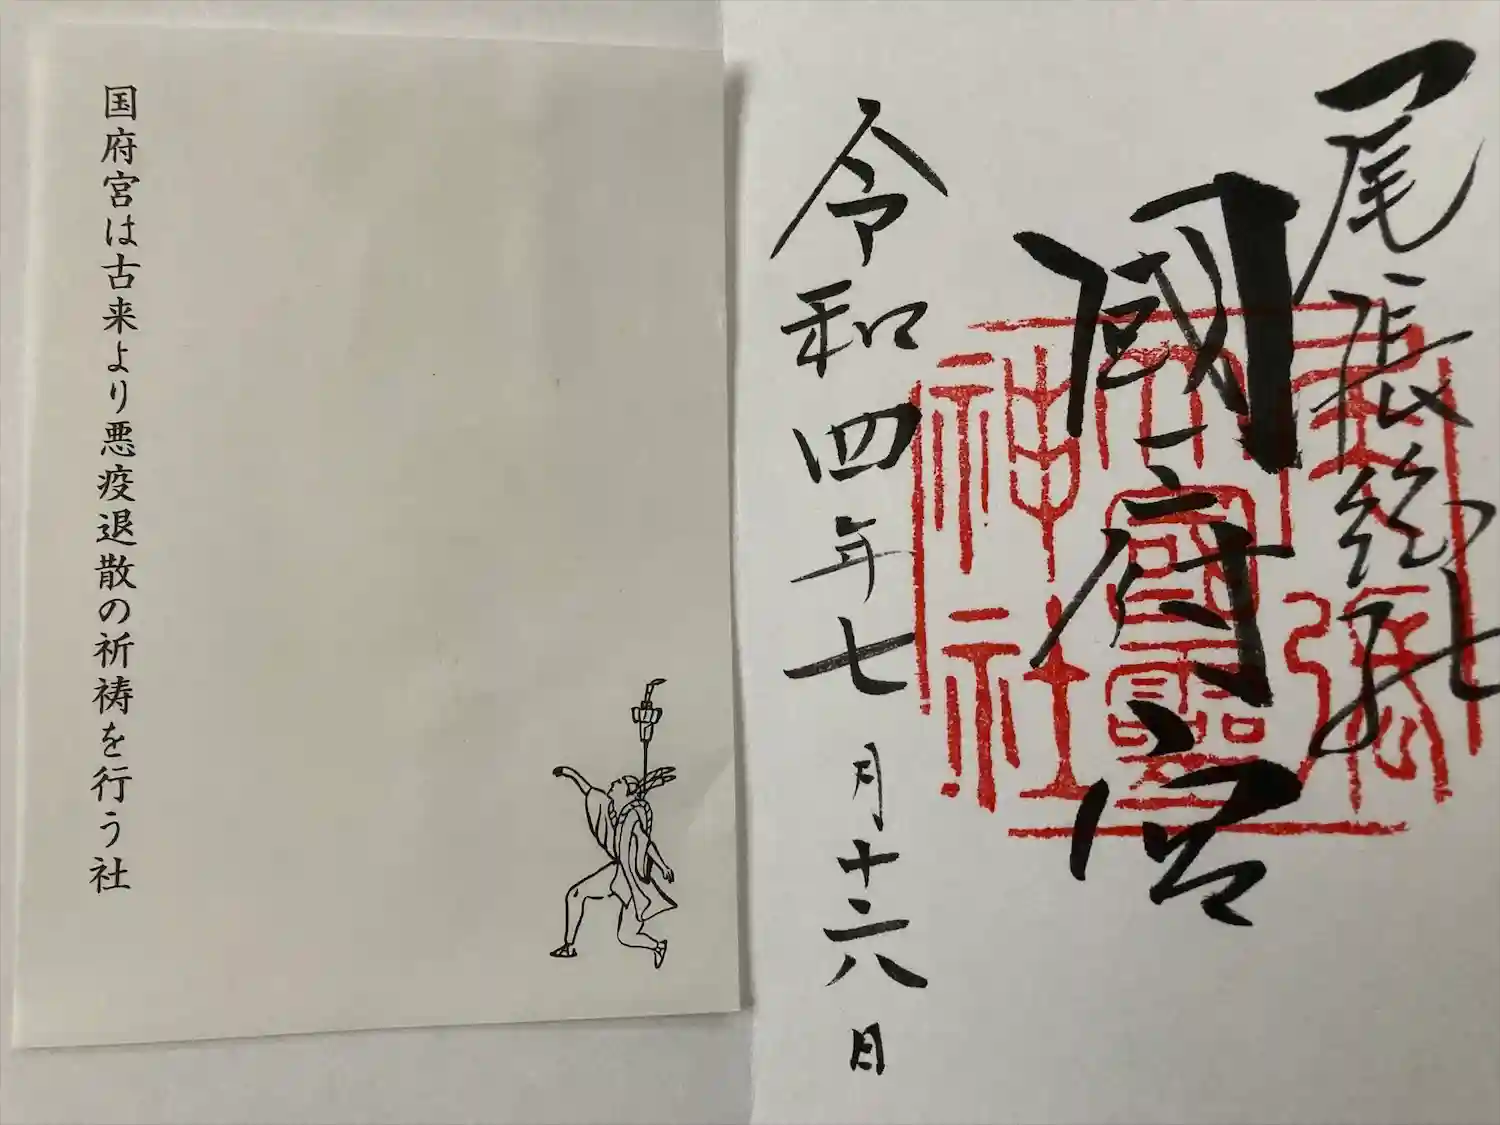 国府宮は古来より悪疫退散の祈祷を行う社
一尾張総社
國府宮
令和四年七月十六日